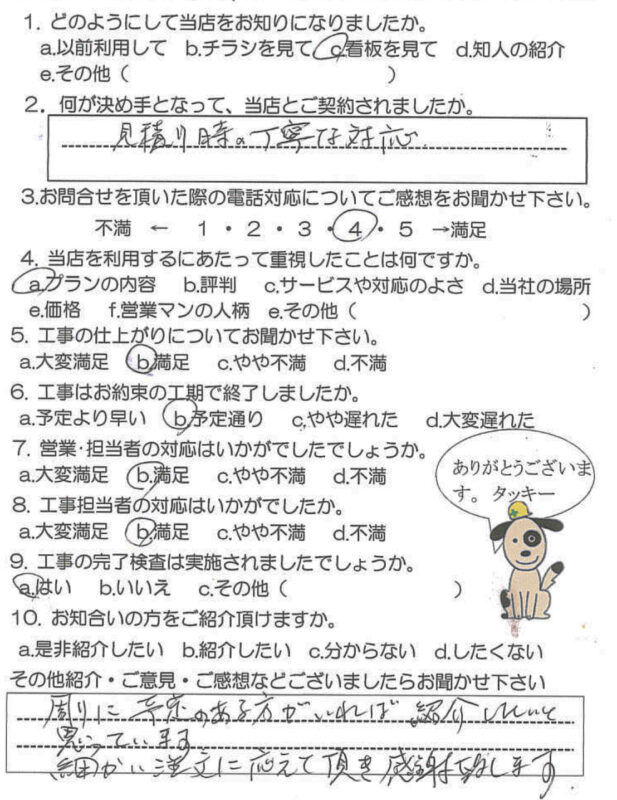 1. どのようにして当店をお知りになりましたか。
a.以前利用して b.チラシを見て c.看板を見て d.知人の紹介
e.その他（ ）
2. 何が決め手となって、当店とご契約されましたか。
見積り時の丁寧な対応
3.お問合せを頂いた際の電話対応についてご感想をお聞かせ下さい。
不満 ← 1・2・3・4・5 →満足
4. 当店を利用するにあたって重視したことは何ですか。
a.プランの内容 b.評判 c.サービスや対応のよさ d.当社の場所
e.価格 f.営業マンの人柄 e.その他（ ）
5. 工事の仕上がりについてお聞かせ下さい。
a.大変満足 b.満足 c.やや不満 d.不満
6. 工事はお約束の工期で終了しましたか。
a.予定より早い b.予定通り c.やや遅れた d.大変遅れた
7. 営業・担当者の対応はいかがでしたでしょうか。
a.大変満足 b.満足 c.やや不満 d.不満
ありがとうございま
す。 タッキー
8. 工事担当者の対応はいかがでしたか。
a.大変満足 b.満足 c.やや不満 d.不満
9. 工事の完了検査は実施されましたでしょうか。
a.はい b.いいえ c.その他（ ）
10. お知合いの方をご紹介頂けますか。
a.是非紹介したい b.紹介したい c.分からない d.したくない
その他紹介・ご意見・ご感想などございましたらお聞かせ下さい
周りに予定のある方がいれば 紹介したいと
思っています
細かい注文に応えて頂き感謝致します